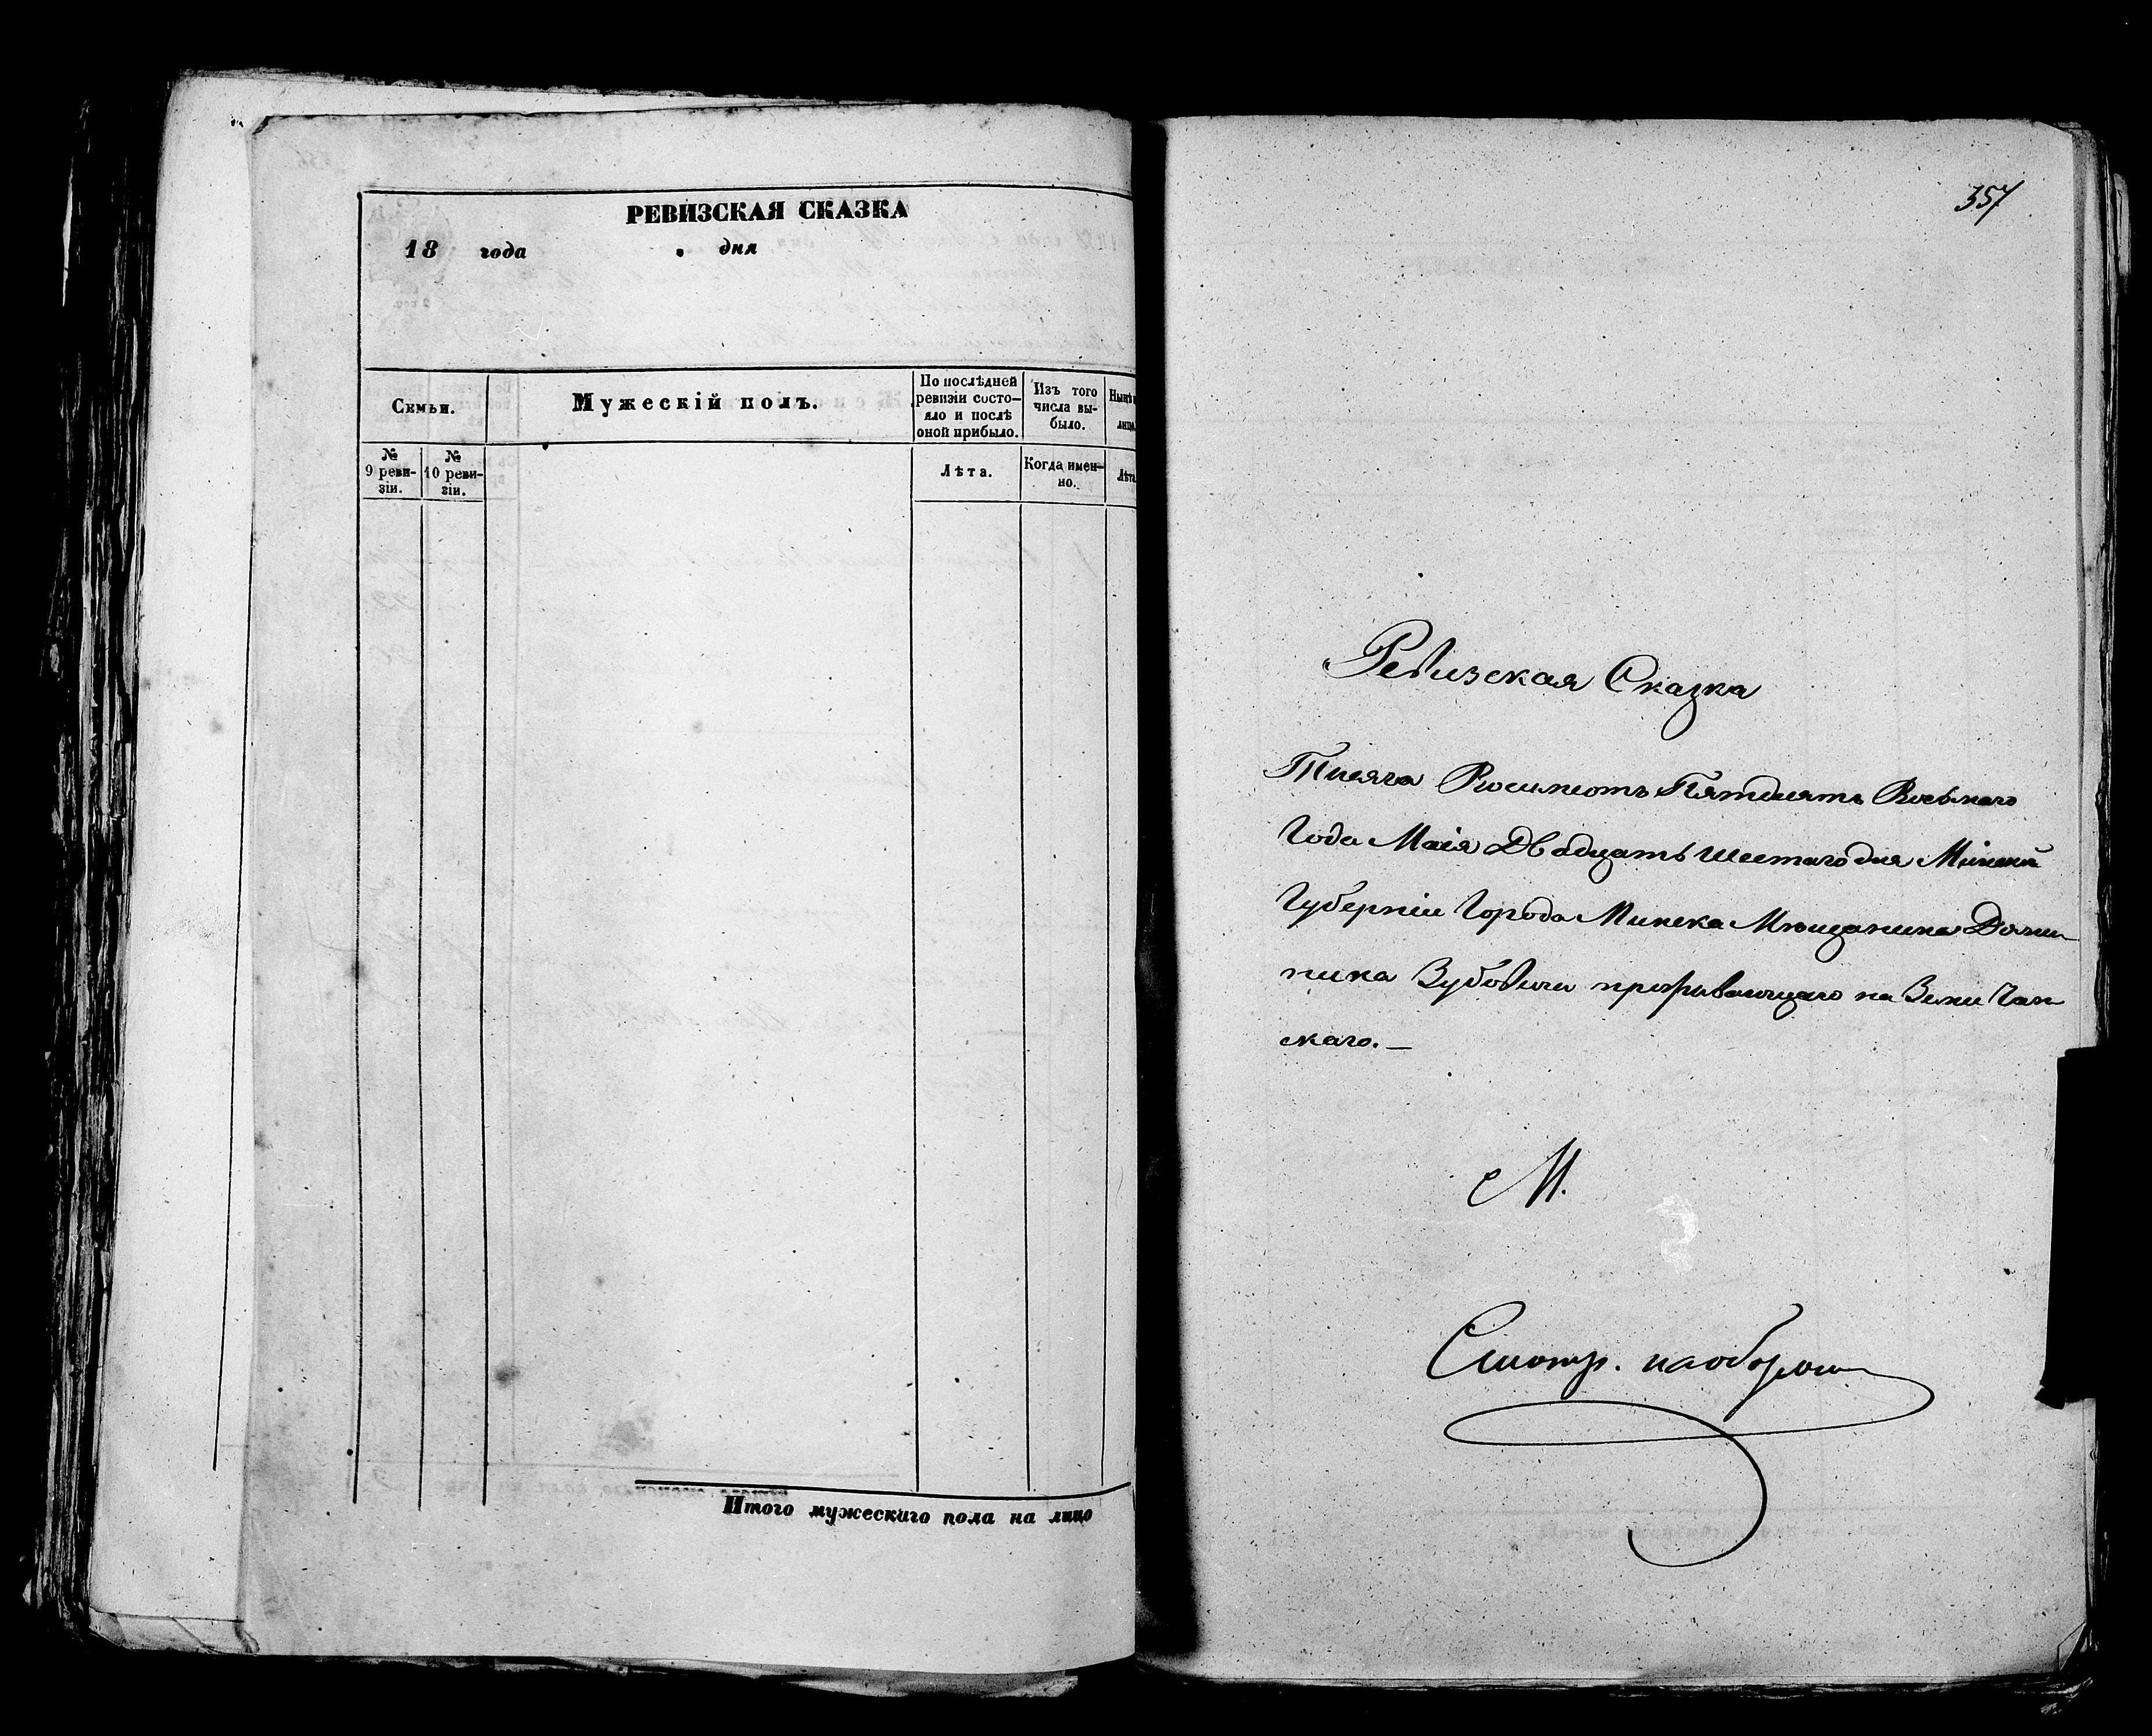 РЕВИЗСКАЯ СКАЗКА
18 года дня
Семьи.
Мужескій полъ.
По послѣдней
ревизіи состо-
яло и послѣ
оной прибыло.
Изъ того
числа вы-
было.
Нынѣ
лицо
№
9 реви-
зіи.
№
10 реви-
зіи.
Лѣта.
Когда имен-
но.
Лѣта
Итого мужескаго пола на лицо
357
Ревизская Сказка
Тисяча Восимсотъ Пятдесятъ Восьмаго
Года Маія Двадцать шестаго дня Мінской
Губерніи Города Минска Мѣщанина Доми-
ника Зубовича проживающаго на Земли Чап
скаго. —
М.
Смотр. на оборотѣ